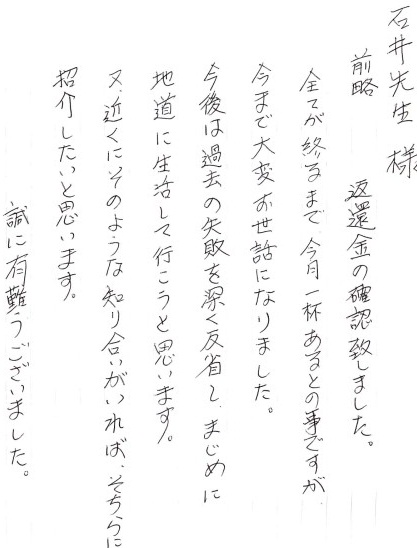 石井先生 様
前略 返還金の確認致しました。
全てが終るまで、今月一杯あるとの事ですが、
今まで大変お世話になりました。
今後は過去の失敗を深く反省し、まじめに
地道に生活して行こうと思います。
又、近くにそのような知り合いがいれば、そちらに
招介したいと思います。
誠に有難うございました。